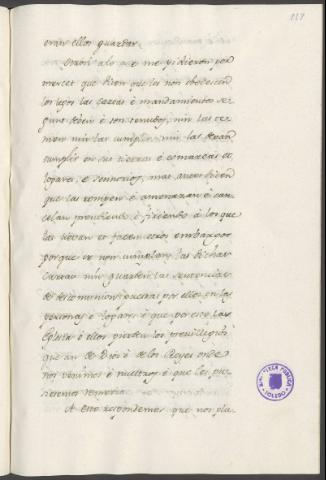 127
eran ellos guardar.
Otrosi alo q̃ me pidieron por
merçet que bien que les non obedecen
los legos las cartas é mandamientos se
gunt deben é son tenudos, nin las te
men nin las cumplir nin las
cumplir en sus tierras é comarcas é
logares, é sennorios, mas antes dicen
que las rompen é amenazan é can
celan prendiendo, é firiendo á los que
las lievan et facen otros embargos
porque se non cumplan las dichas
cartas nin guarden las sentencias
de descomunion puestas por ellos en las
personas é logares é que por esto las
Eglesias é ellos pierden los previllegios
que an de Dios é de los Reyes onde
nos venimos é nuestros é que les pu
siesemos remedio.
A esto respondemos que nos pla
BIBLIOTECA PUBLICA
TOLEDO